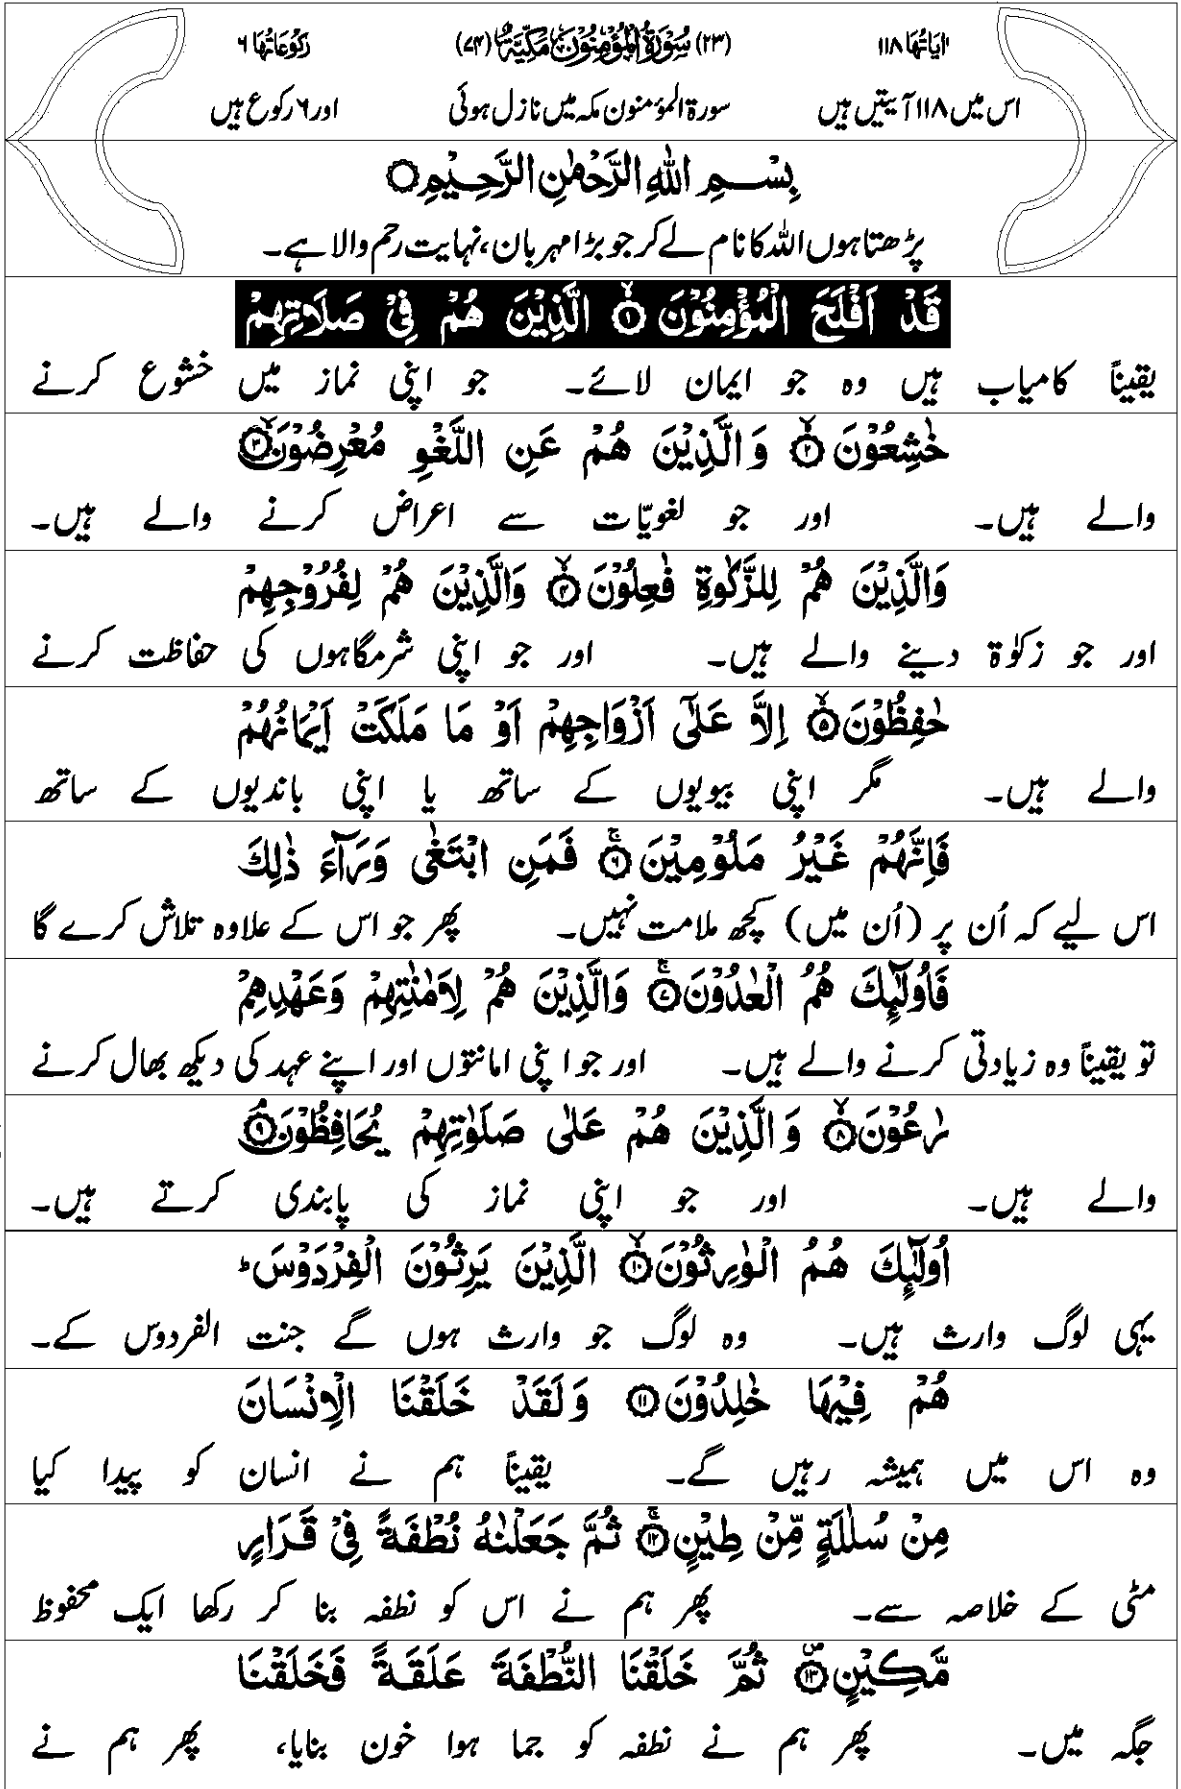 اٰیَاتُهَا ۱۱۸ (۲۳) سُوْرَةُ الْمُؤْمِنُوْنَ مَکِّیَّةٌ (۷۴) رُکُوْعَاتُهَا ۶
اس میں ۱۱۸ آیتیں ہیں سورۃ المؤمنون مکہ میں نازل ہوئی اور ۶ رکوع ہیں
بِسْمِ اللهِ الرَّحْمٰنِ الرَّحِیْمِ
پڑھتا ہوں اللہ کا نام لے کر جو بڑا مہربان، نہایت رحم والا ہے۔
قَدْ اَفْلَحَ الْمُؤْمِنُوْنَ ۱ الَّذِیْنَ هُمْ فِیْ صَلَاتِهِمْ
یقیناً کامیاب ہیں وہ جو ایمان لائے۔ جو اپنی نماز میں خشوع کرنے
خٰشِعُوْنَ ۲ وَالَّذِیْنَ هُمْ عَنِ اللَّغْوِ مُعْرِضُوْنَ ۳
والے ہیں۔ اور جو لغویّات سے اعراض کرنے والے ہیں۔
وَالَّذِیْنَ هُمْ لِلزَّکٰوةِ فٰعِلُوْنَ ۴ وَالَّذِیْنَ هُمْ لِفُرُوْجِهِمْ
اور جو زکوٰۃ دینے والے ہیں۔ اور جو اپنی شرمگاہوں کی حفاظت کرنے
حٰفِظُوْنَ ۵ اِلَّا عَلٰٓی اَزْوَاجِهِمْ اَوْ مَا مَلَکَتْ اَیْمَانُهُمْ
والے ہیں۔ مگر اپنی بیویوں کے ساتھ یا اپنی باندیوں کے ساتھ
فَاِنَّهُمْ غَیْرُ مَلُوْمِیْنَ ۶ فَمَنِ ابْتَغٰی وَرَآءَ ذٰلِكَ
اس لیے کہ اُن پر (اُن میں) کچھ ملامت نہیں۔ پھر جو اس کے علاوہ تلاش کرے گا
فَاُولٰٓئِكَ هُمُ الْعٰدُوْنَ ۷ وَالَّذِیْنَ هُمْ لِاَمٰنٰتِهِمْ وَعَهْدِهِمْ
تو یقیناً وہ زیادتی کرنے والے ہیں۔ اور جو اپنی امانتوں اور اپنے عہد کی دیکھ بھال کرنے
رٰعُوْنَ ۸ وَالَّذِیْنَ هُمْ عَلٰی صَلَوٰتِهِمْ یُحَافِظُوْنَ ۹
والے ہیں۔ اور جو اپنی نماز کی پابندی کرتے ہیں۔
اُولٰٓئِكَ هُمُ الْوٰرِثُوْنَ ۱۰ الَّذِیْنَ یَرِثُوْنَ الْفِرْدَوْسَ ؕ
یہی لوگ وارث ہیں۔ وہ لوگ جو وارث ہوں گے جنت الفردوس کے۔
هُمْ فِیْهَا خٰلِدُوْنَ ۱۱ وَلَقَدْ خَلَقْنَا الْاِنْسَانَ
وہ اس میں ہمیشہ رہیں گے۔ یقیناً ہم نے انسان کو پیدا کیا
مِنْ سُلٰلَةٍ مِّنْ طِیْنٍ ۱۲ ثُمَّ جَعَلْنٰهُ نُطْفَةً فِیْ قَرَارٍ
مٹی کے خلاصہ سے۔ پھر ہم نے اس کو نطفہ بنا کر رکھا ایک محفوظ
مَّکِیْنٍ ۱۳ ثُمَّ خَلَقْنَا النُّطْفَةَ عَلَقَةً فَخَلَقْنَا
جگہ میں۔ پھر ہم نے نطفہ کو جما ہوا خون بنایا، پھر ہم نے